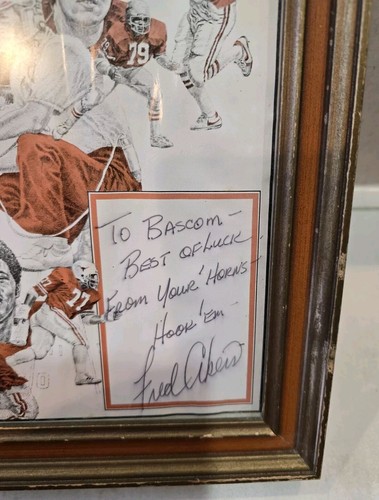 79
To Bascom -
Best of Luck
From Your 'Horns -
Hook 'Em -
Fred Akers